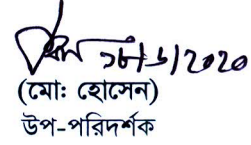 ২০২০
(মোঃ হোসেন)
উপ-পরিদর্শক